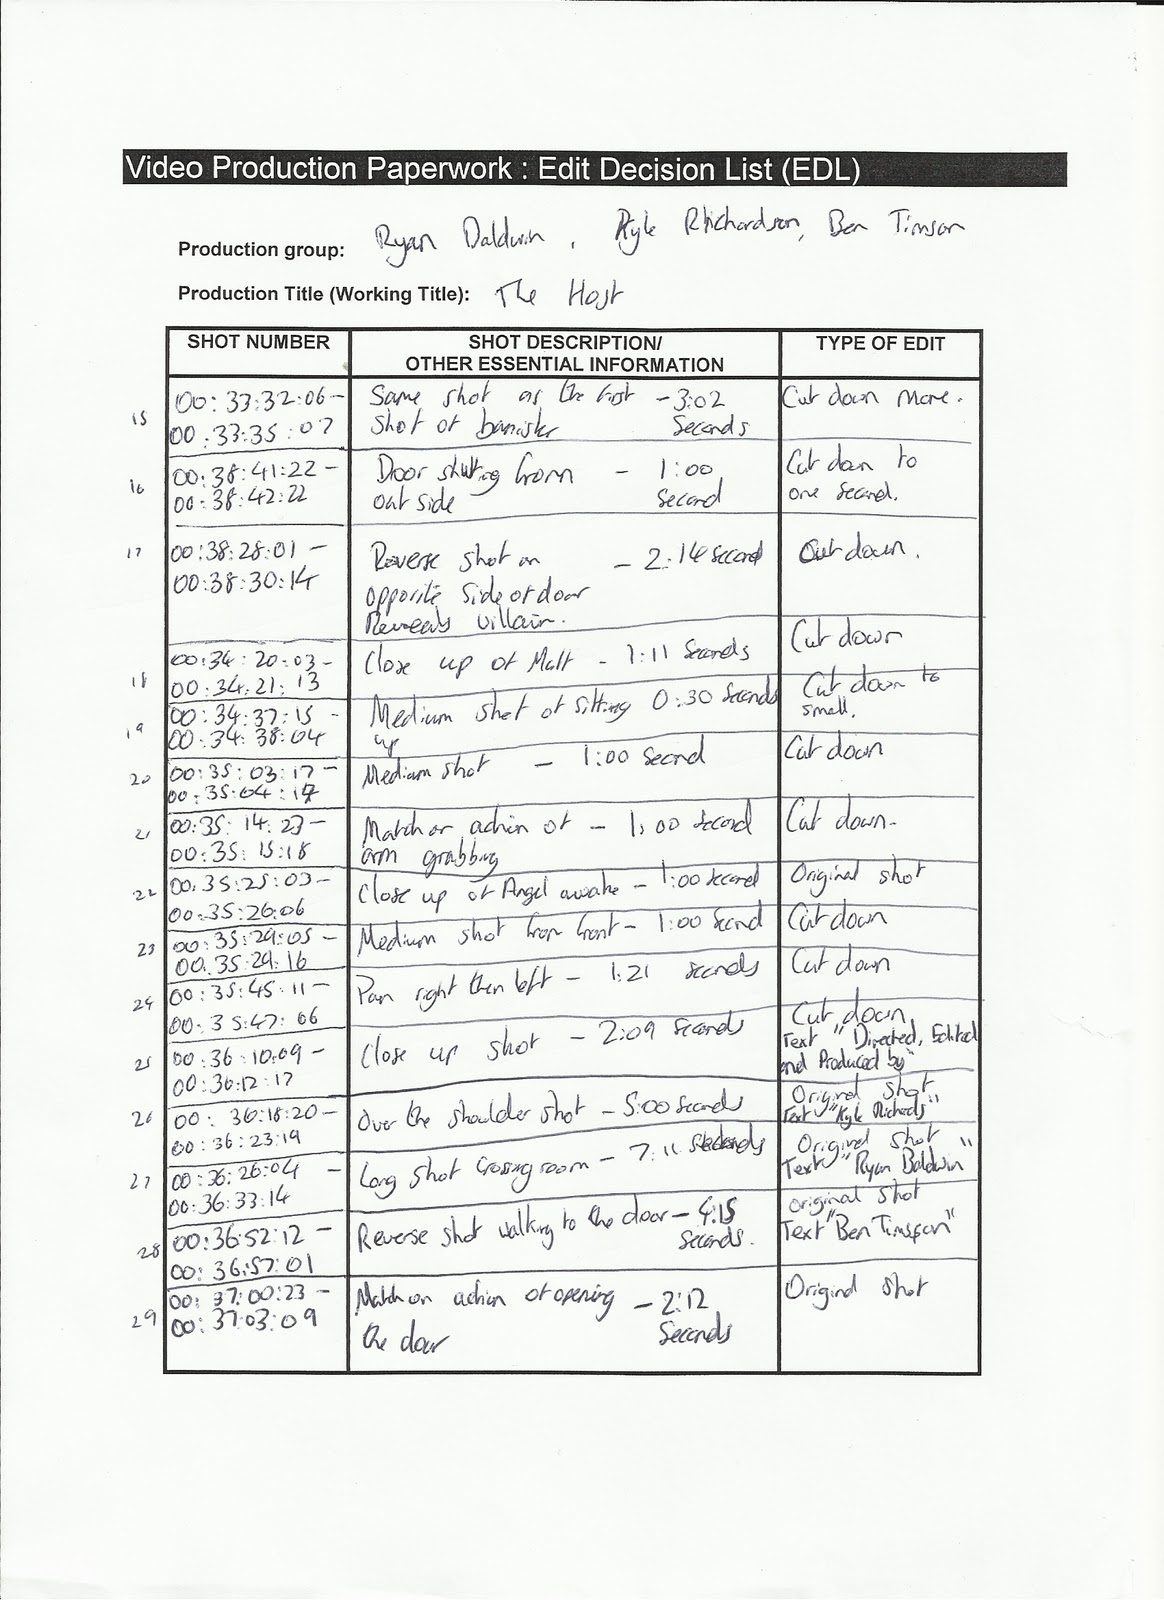 Video Production Paperwork : Edit Decision List (EDL)
Production group: Ryan Baldwin , Kyle Richardson, Ben Timson
Production Title (Working Title): The Host
SHOT NUMBER
SHOT DESCRIPTION/
OTHER ESSENTIAL INFORMATION
TYPE OF EDIT
15
00:33:32:06 –
00:33:35:07
Same shot as the first – 3:02
Shot of banister Seconds
Cut down more.
16
00:38:41:22 –
00:38:42:22
Door shutting from – 1:00
outside second
Cut down to
one second.
17
00:38:28:01 –
00:38:30:14
Reverse shot on – 2:14 second
opposite side of door
Reveals villain.
Cut down.
18
00:34:20:03 –
00:34:21:13
Close up of Matt – 1:11 Seconds
Cut down
19
00:34:37:15 –
00:34:38:04
Medium shot of sitting 0:30 Seconds
up
Cut down to
small.
20
00:35:03:17 –
00:35:04:17
Medium shot – 1:00 Second
Cut down
21
00:35:14:23 –
00:35:15:18
Match on action of – 1:00 second
arm grabbing
Cut down.
22
00:35:25:03 –
00:35:26:06
Close up of Angel awake – 1:00 second
Original shot
23
00:35:29:05 –
00:35:29:16
Medium shot from front – 1:00 Second
Cut down
24
00:35:45:11 –
00:35:47:06
Pan right then left – 1:21 seconds
Cut down
25
00:36:10:09 –
00:36:12:17
Close up shot – 2:09 seconds
Cut down
Text "Directed, Edited
and Produced by"
26
00:36:18:20 –
00:36:23:19
Over the shoulder shot – 5:00 seconds
Original shot
Text "Kyle Richards"
27
00:36:26:04 –
00:36:33:14
Long shot crossing room – 7:11 seconds
Original shot
Text "Ryan Baldwin"
28
00:36:52:12 –
00:36:57:01
Reverse shot walking to the door – 4:15
seconds.
original shot
Text "Ben Timson"
29
00:37:00:23 –
00:37:03:09
Match on action of opening – 2:12
the door Seconds
Original shot